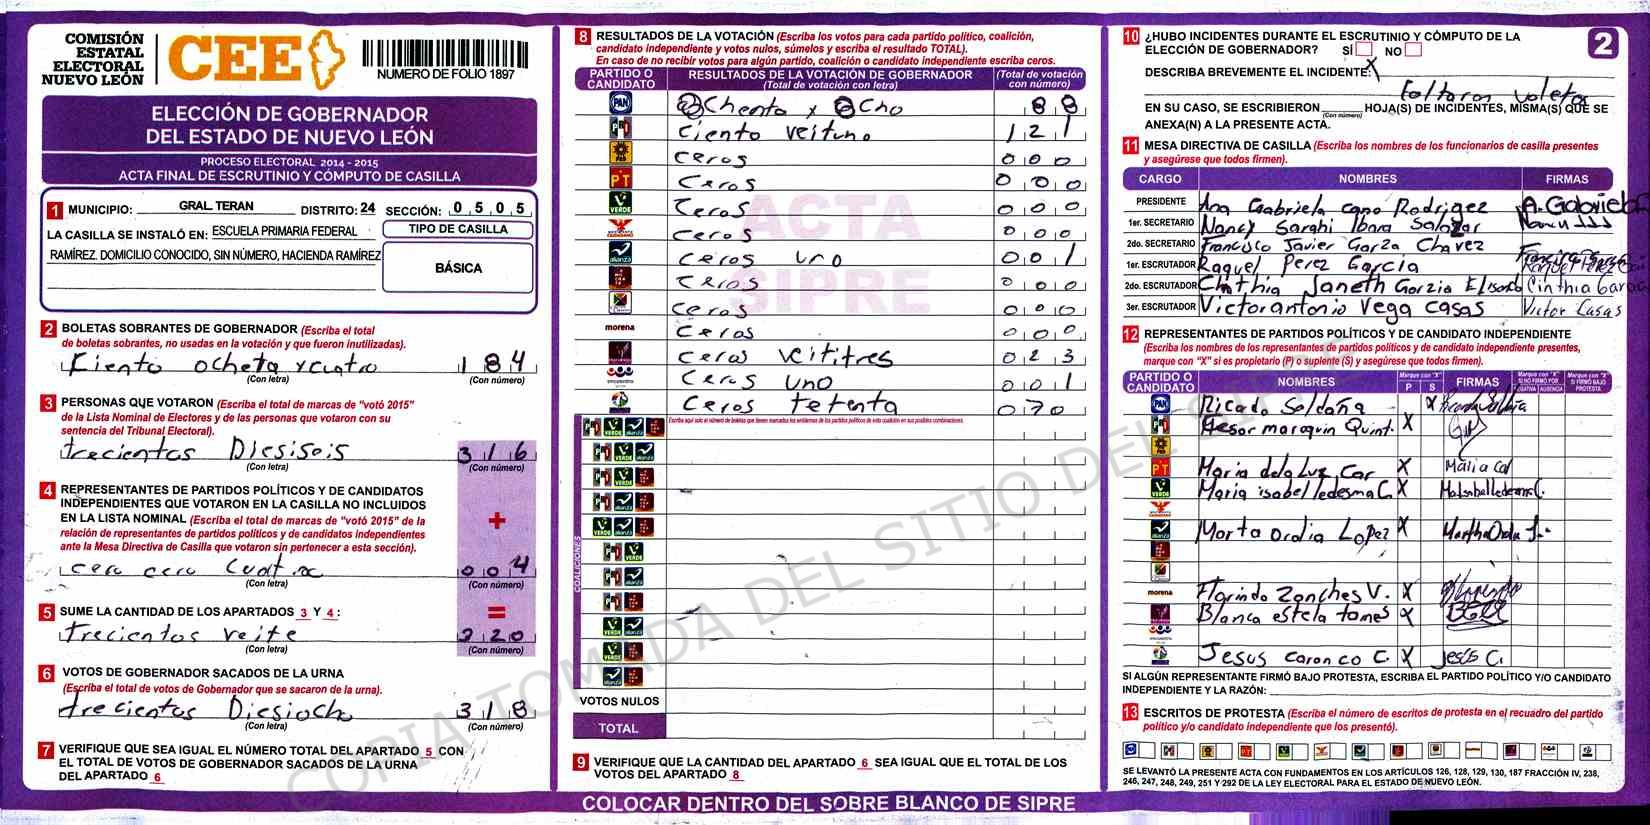 COMISIÓN
ESTATAL
ELECTORAL
NUEVO LEÓN
CEE
NUMERO DE FOLIO 1897
ELECCIÓN DE GOBERNADOR
DEL ESTADO DE NUEVO LEÓN
PROCESO ELECTORAL 2014 - 2015
ACTA FINAL DE ESCRUTINIO Y CÓMPUTO DE CASILLA
1 MUNICIPIO: GRAL. TERAN DISTRITO: 24 SECCIÓN: 0 5 0 5
LA CASILLA SE INSTALÓ EN: ESCUELA PRIMARIA FEDERAL
TIPO DE CASILLA
RAMÍREZ. DOMICILIO CONOCIDO, SIN NÚMERO, HACIENDA RAMÍREZ
BÁSICA
2 BOLETAS SOBRANTES DE GOBERNADOR (Escriba el total
de boletas sobrantes, no usadas en la votación y que fueron inutilizadas).
Ciento ocheta y cuatro 184
(Con letra) (Con número)
3 PERSONAS QUE VOTARON (Escriba el total de marcas de "votó 2015"
de la Lista Nominal de Electores y de las personas que votaron con su
sentencia del Tribunal Electoral).
trecientos Diesiseis 316
(Con letra) (Con número)
4 REPRESENTANTES DE PARTIDOS POLÍTICOS Y DE CANDIDATOS
INDEPENDIENTES QUE VOTARON EN LA CASILLA NO INCLUIDOS
EN LA LISTA NOMINAL (Escriba el total de marcas de "votó 2015" de la
relación de representantes de partidos políticos y de candidatos independientes
ante la Mesa Directiva de Casilla que votaron sin pertenecer a esta sección).
+
cero cero cuatro 004
(Con letra) (Con número)
5 SUME LA CANTIDAD DE LOS APARTADOS 3 Y 4 : =
trecientos veite 320
(Con letra) (Con número)
6 VOTOS DE GOBERNADOR SACADOS DE LA URNA
(Escriba el total de votos de Gobernador que se sacaron de la urna).
trecientos Diesiocho 318
(Con letra) (Con número)
7 VERIFIQUE QUE SEA IGUAL EL NÚMERO TOTAL DEL APARTADO 5 CON
EL TOTAL DE VOTOS DE GOBERNADOR SACADOS DE LA URNA
DEL APARTADO 6
8 RESULTADOS DE LA VOTACIÓN (Escriba los votos para cada partido político, coalición,
candidato independiente y votos nulos, súmelos y escriba el resultado TOTAL).
En caso de no recibir votos para algún partido, coalición o candidato independiente escriba ceros.
PARTIDO O CANDIDATO
RESULTADOS DE LA VOTACIÓN DE GOBERNADOR
(Total de votación con letra)
(Total de votación con número)
PAN Ochenta y Ocho 88
PRI Ciento veituno 121
PRD Ceros 000
PT Ceros 000
VERDE Ceros 000
Ceros 000
alianza Ceros uno 001
Ceros 000
Ceros 000
morena Ceros 000
Ceros veititres 023
Ceros uno 001
Ceros tetenta 070
Escriba aquí solo el número de boletas que tienen marcados los emblemas de los partidos políticos de esta coalición en sus posibles combinaciones.
COALICIONES
VOTOS NULOS
TOTAL
ACTA
SIPRE
9 VERIFIQUE QUE LA CANTIDAD DEL APARTADO 6 SEA IGUAL QUE EL TOTAL DE LOS
VOTOS DEL APARTADO 8
COLOCAR DENTRO DEL SOBRE BLANCO DE SIPRE
2
10 ¿HUBO INCIDENTES DURANTE EL ESCRUTINIO Y CÓMPUTO DE LA
ELECCIÓN DE GOBERNADOR? SÍ NO
X
DESCRIBA BREVEMENTE EL INCIDENTE:
faltaron voletas
EN SU CASO, SE ESCRIBIERON HOJA(S) DE INCIDENTES, MISMA(S) QUE SE
(Con número)
ANEXA(N) A LA PRESENTE ACTA.
11 MESA DIRECTIVA DE CASILLA (Escriba los nombres de los funcionarios de casilla presentes
y asegúrese que todos firmen).
CARGO NOMBRES FIRMAS
PRESIDENTE Ana Gabriela cano Rodrigez A. Gabriela
1er. SECRETARIO Nancy Sarahi Ibara Salazar
2do. SECRETARIO Francisco Javier Garza Chavez
1er. ESCRUTADOR Raquel Perez Garcia Raquel Perez
2do. ESCRUTADOR Cinthia Janeth Garzia Elisondo Cinthia Garcia
3er. ESCRUTADOR Victor antonio Vega casas Victor Casas
12 REPRESENTANTES DE PARTIDOS POLÍTICOS Y DE CANDIDATO INDEPENDIENTE
(Escriba los nombres de los representantes de partidos políticos y de candidato independiente presentes,
marque con "X" si es propietario (P) o suplente (S) y asegúrese que todos firmen).
PARTIDO O CANDIDATO NOMBRES Marque con "X" P S FIRMAS Marque con "X" SI NO FIRMÓ POR NEGATIVA AUSENCIA Marque con "X" SI FIRMÓ BAJO PROTESTA
PAN Ricado Soldaña X
PRI Cesar maroquin Quint. X
PRD
PT Maria dela Luz Car X Maria Ca
VERDE Maria isabel ledesma C. X Ma Isabel ledesma C.
alianza Marta Oralia Lopez X Martha Oralia
morena Florindo Zanches V. X
Blanca estela tomes X
Jesus caranco C. X Jesus C.
SI ALGÚN REPRESENTANTE FIRMÓ BAJO PROTESTA, ESCRIBA EL PARTIDO POLÍTICO Y/O CANDIDATO
INDEPENDIENTE Y LA RAZÓN:
13 ESCRITOS DE PROTESTA (Escriba el número de escritos de protesta en el recuadro del partido
político y/o candidato independiente que los presentó).
SE LEVANTÓ LA PRESENTE ACTA CON FUNDAMENTOS EN LOS ARTÍCULOS 126, 128, 129, 130, 187 FRACCIÓN IV, 238,
246, 247, 248, 249, 251 Y 292 DE LA LEY ELECTORAL PARA EL ESTADO DE NUEVO LEÓN.
COPIA TOMADA DEL SITIO DEL SIPRE